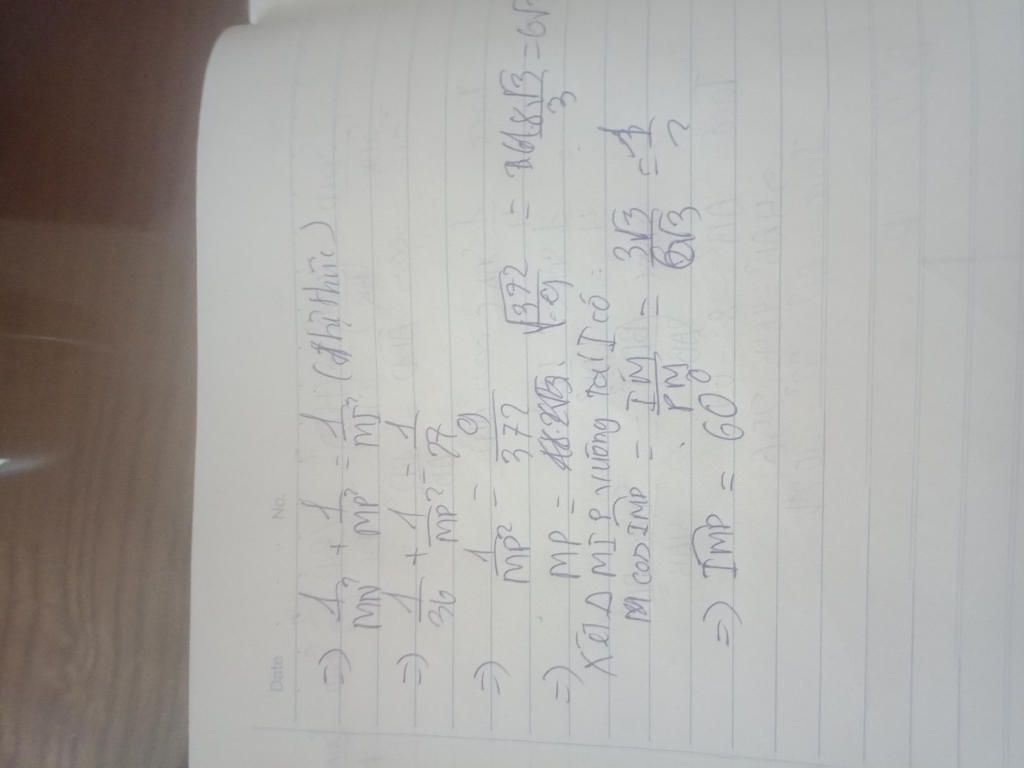 Date No.
=) 1/MN² + 1/MP² = 1/MI² (hệ thức)
=) 1/36 + 1/MP² = 1/27
=) 1/MP² = 9/972
=) MP = √972/9 = 18√3/3 = 6√3
Xét Δ MIP vuông tại I có
cos IMP = IM/PM = 3√3/6√3 = 1/2
=) IMP = 60°